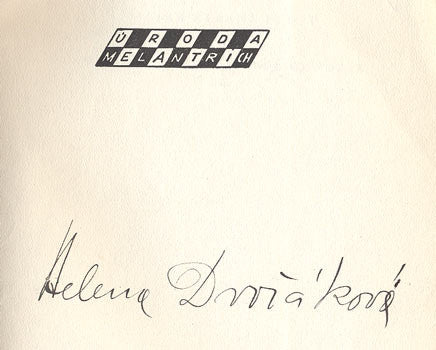 ÚRODA
MELANTRICH
Helena Dvořáková